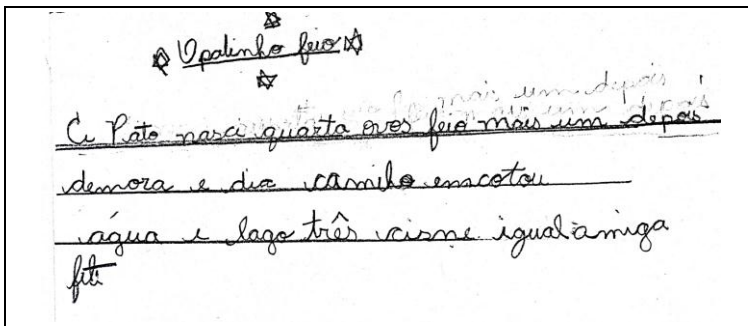 Opatinho feio
A Pato nasci quarta ovos feio mais um depois
demora e dia caminho emcotou
água e lago três cisne igual amiga